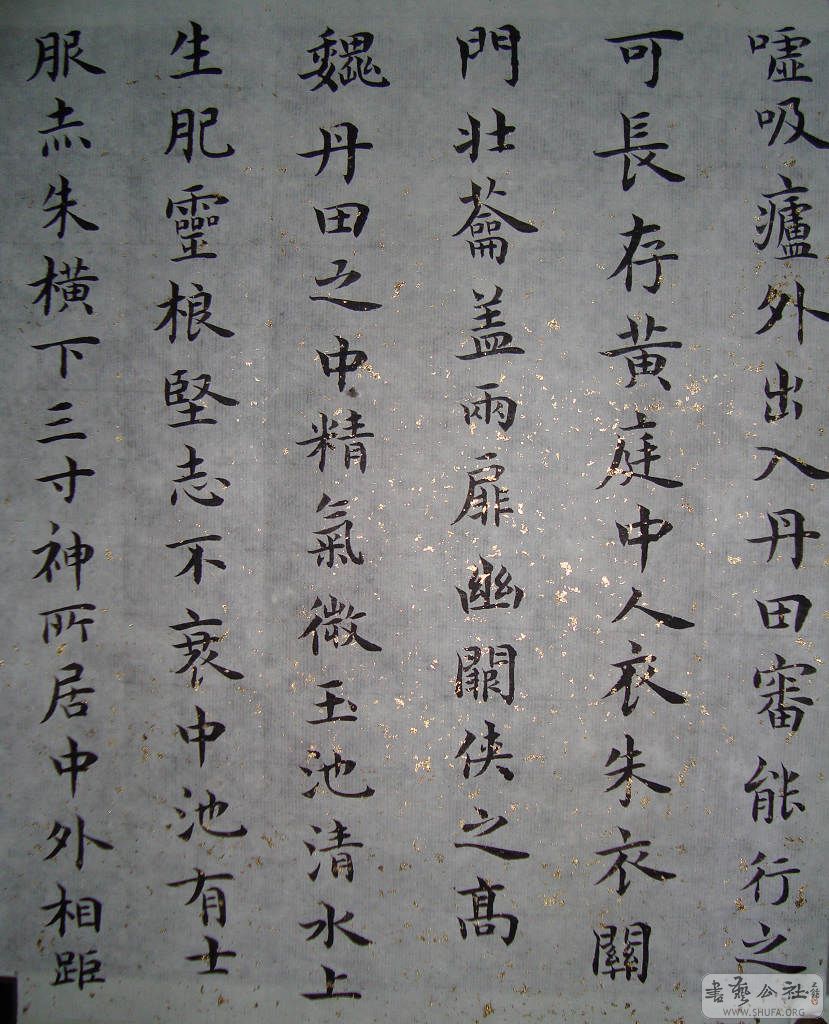 嘘吸癰外出入丹田審能行之
可長存黃庭中人衣朱衣關
門壯蘥盖兩扉幽關俠之高
魏丹田之中精氣微玉池清水上
生肥靈根堅志不衰中池有士
服赤朱橫下三寸神所居中外相距
書藝公社
WWW.SHUFA.ORG